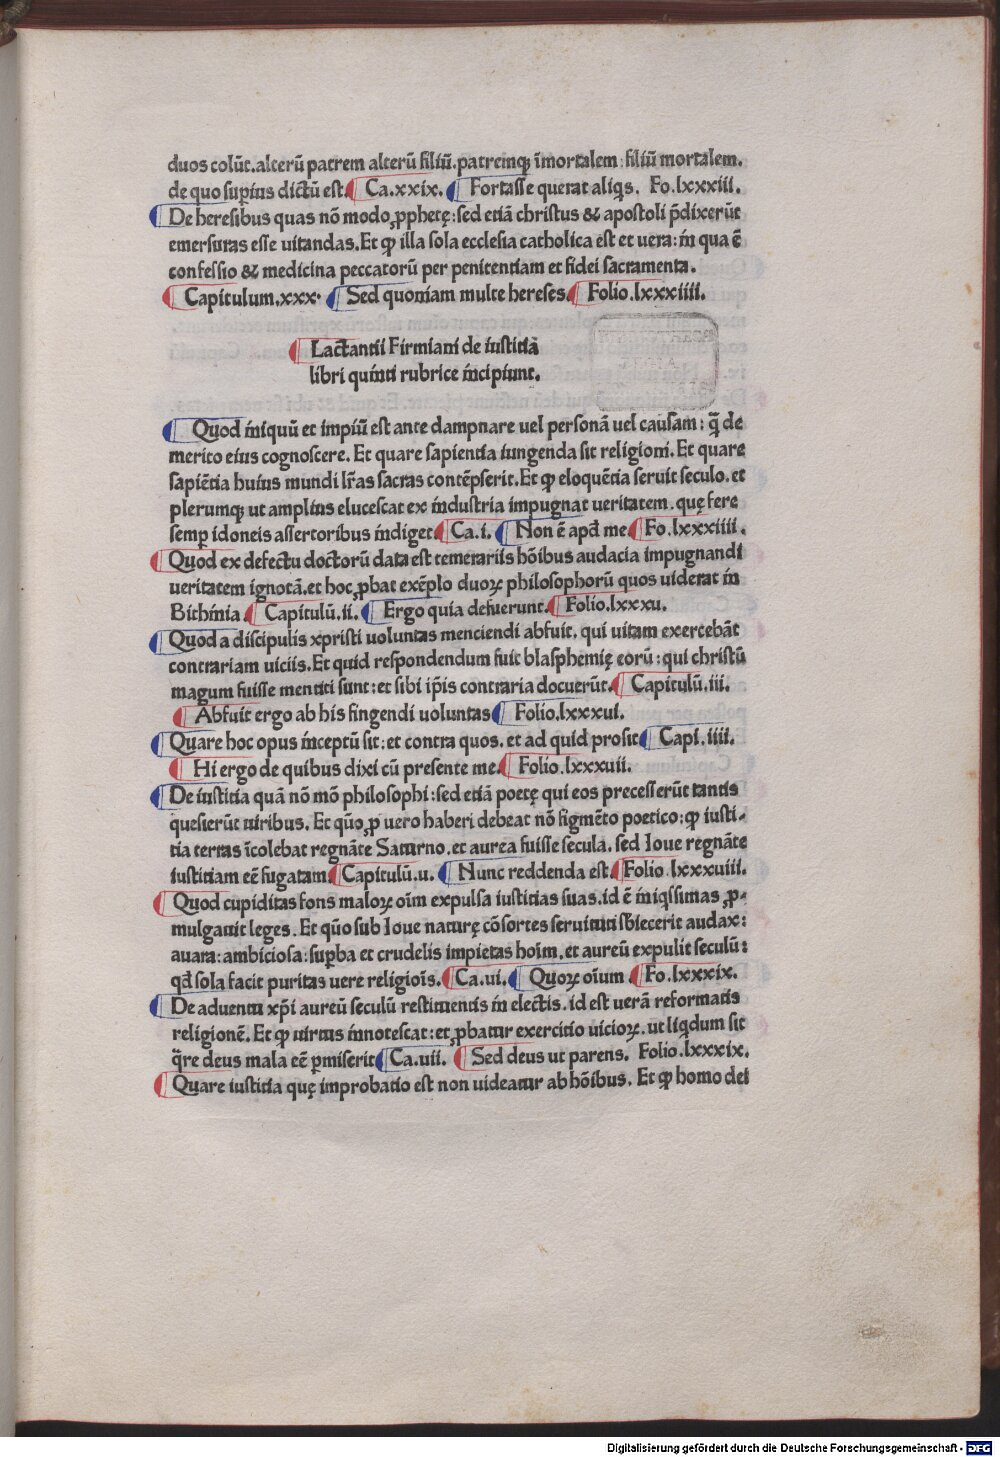 duos colūt.alterū patrem alterū filiū.patremqꝫ īmortalem:filiū mortalem.
de quo supius dictū est. Ca.xxix. Fortasse querat aliqs. Fo.lxxxiii.
De heresibus quas nō modo ꝓphetę:sed etiā christus & apostoli p̄dixerūt
emersuras esse uitandas.Et ꝙ illa sola ecclesia catholica est et uera:in qua ē
confessio & medicina peccatorū per penitentiam et fidei sacramenta.
Capitulum.xxx. Sed quoniam multe hereses. Folio.lxxxiiii.
Lactantii Firmiani de iustitiā
libri quinti rubrice incipiunt.
Quod iniquū et impiū est ante dampnare uel personā uel causam: q̄ de
merito eius cognoscere. Et quare sapientia iungenda sit religioni. Et quare
sapiētia huius mundi lr̄as sacras contēpserit.Et ꝙ eloquētia seruit seculo.et
plerumqꝫ ut amplius elucescat ex industria impugnat ueritatem.quę fere
semꝑ idoneis assertoribus indiget. Ca.i. Non ē apd̄ me. Fo.lxxxiiii.
Quod ex defectu doctorū data est temerariis hōibus audacia impugnandi
ueritatem ignotā.et hoc ꝓbat exēplo duoꝝ philosophorū quos uiderat in
Bithinia. Capitulū.ii. Ergo quia defuerunt. Folio.lxxxu.
Quod a discipulis xpristi uoluntas menciendi abfuit. qui uitam exercebāt
contrariam uiciis.Et quid respondendum fuit blasphemię eorū:qui christū
magum fuisse mentiti sunt:et sibi ip̄is contraria docuerūt. Capitulū.iii.
Abfuit ergo ab his fingendi uoluntas. Folio.lxxxui.
Quare hoc opus inceptū sit:et contra quos.et ad quid prosit. Capi.iiii.
Hi ergo de quibus dixi cū presente me. Folio.lxxxuii.
De iustitia quā nō mō philosophi:sed etiā poetę qui eos precesserūt tantis
quesierūt uiribus. Et quō ꝓ uero haberi debeat nō figmēto poetico:ꝙ iusti-
tia terras īcolebat regnāte Saturno.et aurea fuisse secula. sed Ioue regnāte
iustitiam eē fugatam. Capitulū.u. Nunc reddenda est. Folio.lxxxuiii.
Quod cupiditas fons maloꝝ oīm expulsa iusticias suas.id ē iniqssimas ꝓ-
mulgauit leges. Et quō sub Ioue naturę cōsortes seruituti sbiecerit audax:
auara:ambiciosa:suꝑba et crudelis impietas hoim.et aureū expulit seculū:
qd̄ sola facit puritas uere religioīs. Ca.ui. Quoꝝ oīum. Fo.lxxxix.
De aduentu xp̄i aureū seculū restituentis in electis.id est uerā reformatis
religionē. Et ꝙ uirtus innotescat:et ꝓbatur exercitio uicioꝝ.ut liqdum sit
q̄re deus mala eē ꝑmiserit. Ca.uii. Sed deus ut parens. Folio.lxxxix.
Quare iustitia quę improbatio est non uideatur ab hōibus. Et ꝙ homo dei
Digitalisierung gefördert durch die Deutsche Forschungsgemeinschaft - DFG